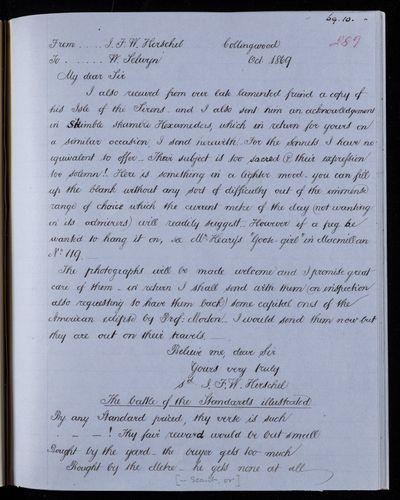 Lg. 10.
287
From ..... J. F. W. Herschel Collingwood
To ...... W. Selwyn Oct. 1869
My dear Sir
I also received from our late lamented friend a copy of
his Isle of the Sirens and I also sent him an acknowledgement
in Skimble skamble Hexameters, which in return for yours on
a similar occasion, I send herewith. For the sonnets I have no
equivalent to offer. Their subject is too sacred & their expression
too solemn! Here is something in a lighter mood. you can fill
up the blank without any sort of difficulty out of the immense
range of choice which the current metre of the day (not wanting
in its admirers) will readily suggest. However if a peg be
wanted to hang it on, see Mr. "Goose-girl" in Macmillan
No. 119.
The photographs will be made welcome and I promise great
care of them - in return I shall send with them (on inspection
also requesting to have them back) some capital ones of the
American eclipse by Prof: Morton. I would send them now but
they are out on their travels.
Believe me, dear Sir
Yours very truly
sd. J. F. W. Herschel
The battle of the Standards illustrated
By any Standard priced, thy verse is such
- - - ! Thy fair reward would be but small
Bought by the yard - the buyer gets too much
Bought by the Metre - he gets none at all
[- Scans, or]